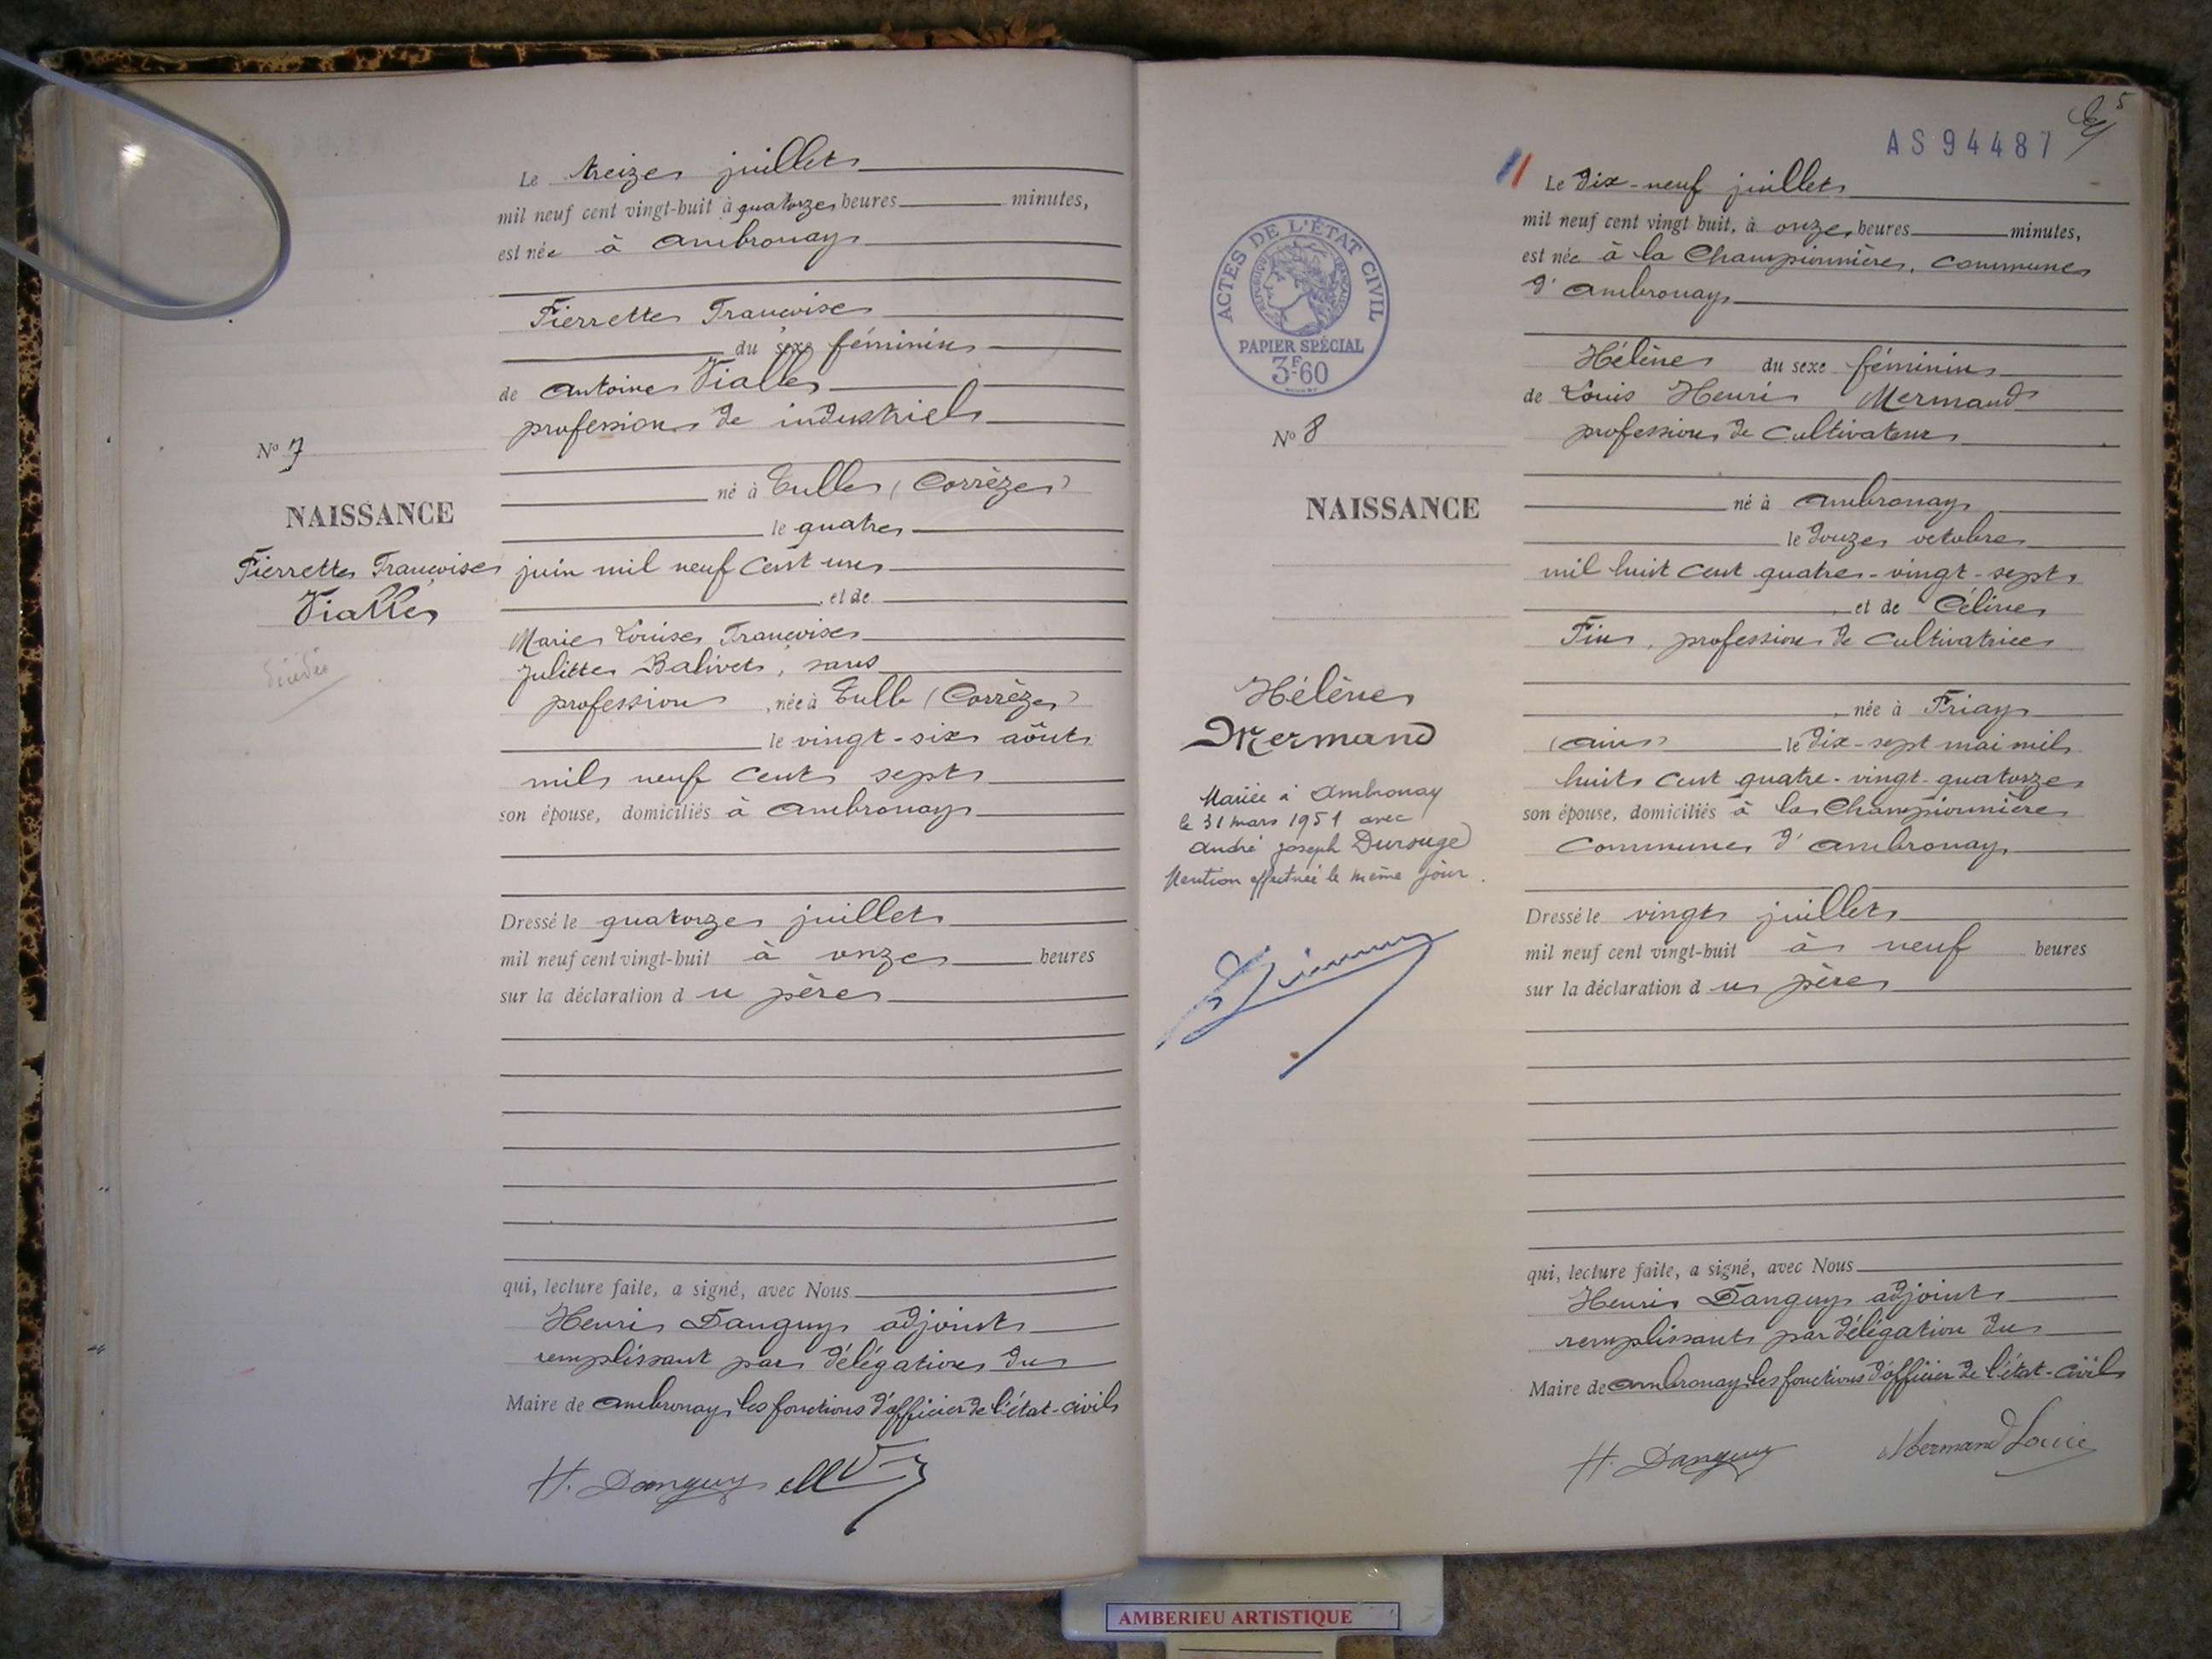 Le treize juillet
mil neuf cent vingt-huit à quatorze heures minutes,
est née à Ambronay
Pierrette Françoise
du sexe féminin
de Antoine Vialle
profession de industriel
né à Tulle (Corrèze)
le quatre
juin mil neuf cent un
et de
Marie Louise Françoise
Juliette Balivet, sans
profession, née à Tulle (Corrèze)
le vingt-six août
mil neuf cent sept
son épouse, domiciliés à Ambronay
Dressé le quatorze juillet
mil neuf cent vingt-huit à onze heures
sur la déclaration du père
qui, lecture faite, a signé, avec Nous
Henri Danguy adjoint
remplissant par délégation du
Maire de Ambronay les fonctions d'officier de l'état-civil
H. Danguy
No 7
NAISSANCE
Pierrette Françoise
Vialle
AS94487
Le dix-neuf juillet
mil neuf cent vingt huit, à onze heures minutes,
est née à la Championnière, commune
d'Ambronay
Hélène du sexe féminin
de Louis Henri Mermand
profession de cultivateur
né à Ambronay
le douze octobre
mil huit cent quatre-vingt-sept
et de Céline
Fin, profession de cultivatrice
née à Priay
(Ain) le dix-sept mai mil
huit cent quatre-vingt-quatorze
son épouse, domiciliés à la Championnière
commune d'Ambronay
Dressé le vingt juillet
mil neuf cent vingt-huit à neuf heures
sur la déclaration du père
qui, lecture faite, a signé, avec Nous
Henri Danguy adjoint
remplissant par délégation du
Maire de Ambronay les fonctions d'officier de l'état-civil
H. Danguy Mermand Louis
ACTES DE L'ÉTAT CIVIL
RÉPUBLIQUE FRANÇAISE
PAPIER SPÉCIAL
3F60
No 8
NAISSANCE
Hélène
Mermand
Mariée à Ambronay
le 31 mars 1951 avec
André Joseph Durouge
Mention effectuée le même jour.
AMBERIEU ARTISTIQUE